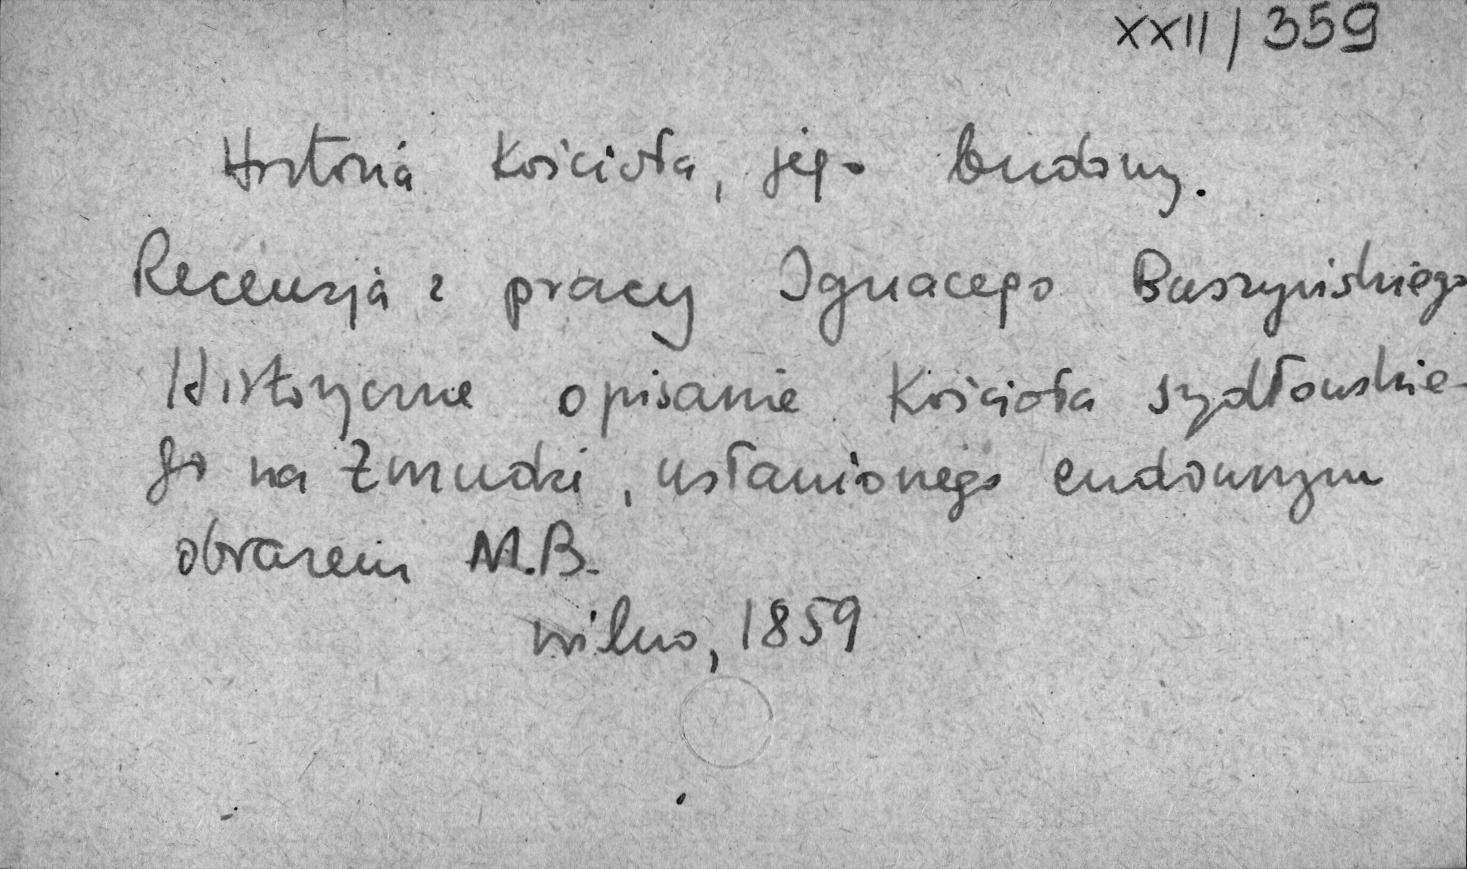 XXII/359
Historia Kościoła, jego budowy.
Recenzja z pracy Ignacego Buszyńskiego
Historyczne opisanie Kościoła szydłowskie-
go na Żmudzi, usławionego cudownym
obrazem M.B.
Wilno, 1859